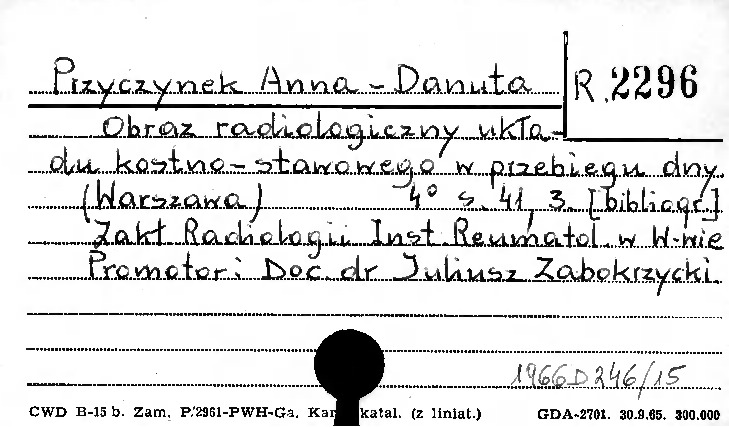 Przyczynek Anna - Danuta
R. 2296
Obraz radiologiczny ukła-
du kostno-stawowego w przebiegu dny.
(Warszawa) 4° s. 41, 3. [bibliogr.]
Zakł. Radiologii Inst. Reumatol. w W-wie
Promotor: Doc. dr Juliusz Zabokrzycki.
1966 D 246/15
CWD B-15 b. Zam. P/2961-PWH-Ga. katal. (z liniat.) GDA-2701. 30.9.65. 300.000